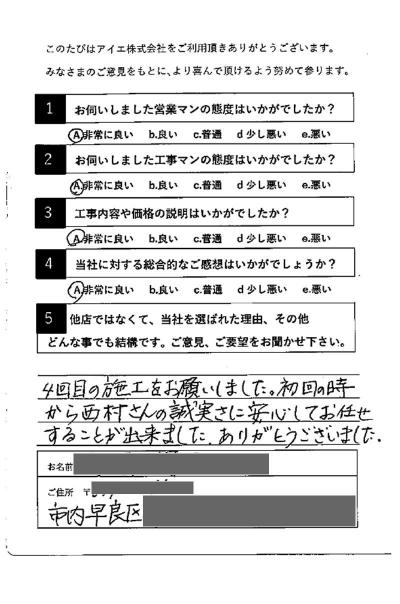 このたびはアイエ株式会社をご利用頂きありがとうございます。
みなさまのご意見をもとに、より喜んで頂けるよう努めて参ります。
1 お伺いしました営業マンの態度はいかがでしたか？
A非常に良い b.良い c.普通 d少し悪い e.悪い
2 お伺いしました工事マンの態度はいかがでしたか？
A非常に良い b.良い c.普通 d少し悪い e.悪い
3 工事内容や価格の説明はいかがでしたか？
A非常に良い b.良い c.普通 d少し悪い e.悪い
4 当社に対する総合的なご感想はいかがでしょうか？
A非常に良い b.良い c.普通 d少し悪い e.悪い
5 他店ではなくて、当社を選ばれた理由、その他
どんな事でも結構です。ご意見、ご要望をお聞かせ下さい。
4回目の施工をお願いしました。初回の時
から西村さんの誠実さに安心してお任せ
することが出来ました。ありがとうございました。
お名前
ご住所 〒
市内早良区